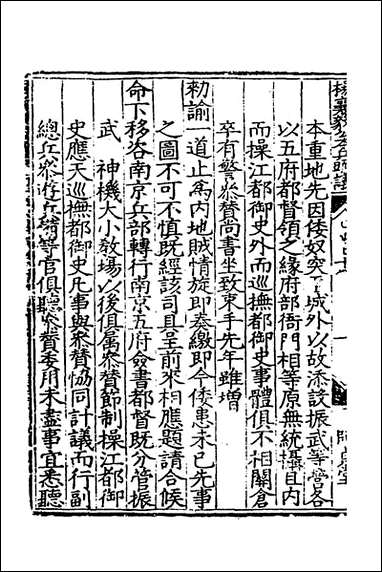 本重地先因倭奴突至城外以故添設振武等營各
以五府都督領之緣府部衙門相等原無統攝且内
而操江都御史外而巡撫都御史事體俱不相關倉
卒有警叅贊尚書坐致束手先年雖增
勑諭一道止為内地賊情旋即奏繳即今倭患未已先事
之圖不可不慎既經該司具呈前來相應題請合候
命下移咨南京兵部轉行南京五府僉書都督既分管振
武 神機大小敎場以後俱属叅贊節制操江都御
史應天巡撫都御史凡事與叅贊協同計議而行副
總兵叅遊兵備等官俱聽叅贊委用未盡事宜悉聽